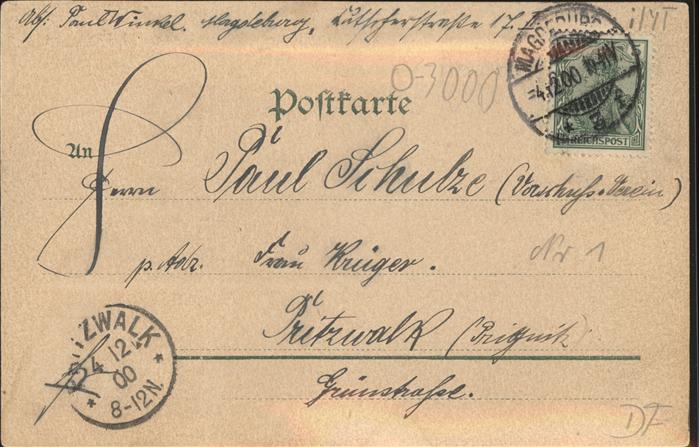 Abs. Paul Winkel. Magdeburg, Lützowerstraße 17.
MAGDEBURG
-4.12.00 10-11V
REICHSPOST
0-3000
Postkarte
An
Herrn Paul Schulze (Vorschuß-Verein)
p. Adr. Frau Krüger.
Nr 1
Pritzwalk (Prignitz)
Grünstraße.
PRITZWALK
4 12
00
8-12N.
DF